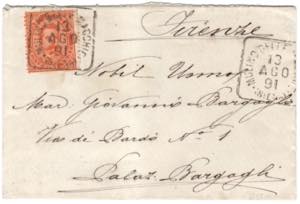 Firenze
13
AGO
91
13
AGO
91
Nobil Uomo
Mar. Giovanni Bargagli
Via de' Bardi Nº 1
Palaz. Bargagli